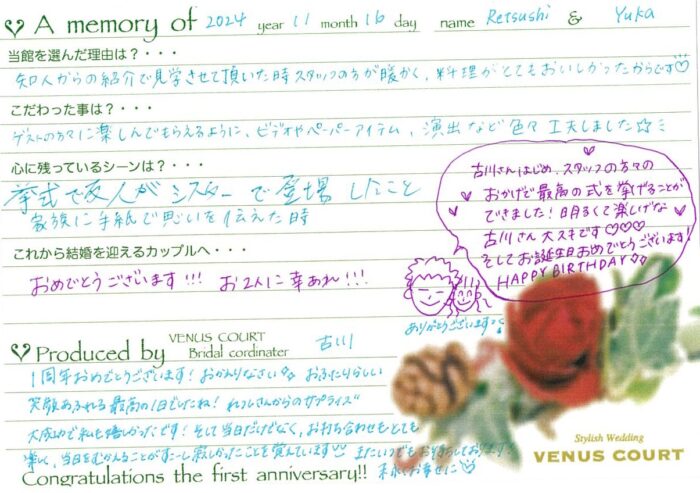 A memory of 2024 year 11 month 16 day name Retsushi & Yuka
当館を選んだ理由は？・・・
知人からの紹介で見学させて頂いた時スタッフの方が暖かく、料理がとてもおいしかったからです♡
こだわった事は？・・・
ゲストの方々に楽しんでもらえるように、ビデオやペーパーアイテム、演出など色々工夫しました☆ミ
心に残っているシーンは？・・・
挙式で友人がシスターで登場したこと
家族に手紙で思いを伝えた時
これから結婚を迎えるカップルへ・・・
おめでとうございます!!! お2人に幸あれ!!!
古川さんはじめ、スタッフの方々の
おかげで最高の式を挙げることが
できました！明るくて楽しげな
古川さん大スキです♡♡♡
そしてお誕生日おめでとうございます！
HAPPY BIRTHDAY☆
ありがとうございます♡
Produced by VENUS COURT
Bridal cordinater 古川
1周年おめでとうございます！おかえりなさい☆ おふたりらしい
笑顔あふれる最高の1日でしたね！れつしさんからのサプライズ
大成功で私も嬉しかったです！そして当日だけでなく、お打ち合わせもとても
楽しく、当日をむかえることがすこーし寂しかったことを覚えています またいつでもお待ちしております！
末永くお幸せに♡
Congratulations the first anniversary!!
Stylish Wedding
VENUS COURT